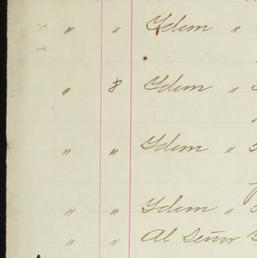 " " Ydem "
" 8 Ydem "
" " Ydem "
" " Ydem "
" " Al Señor